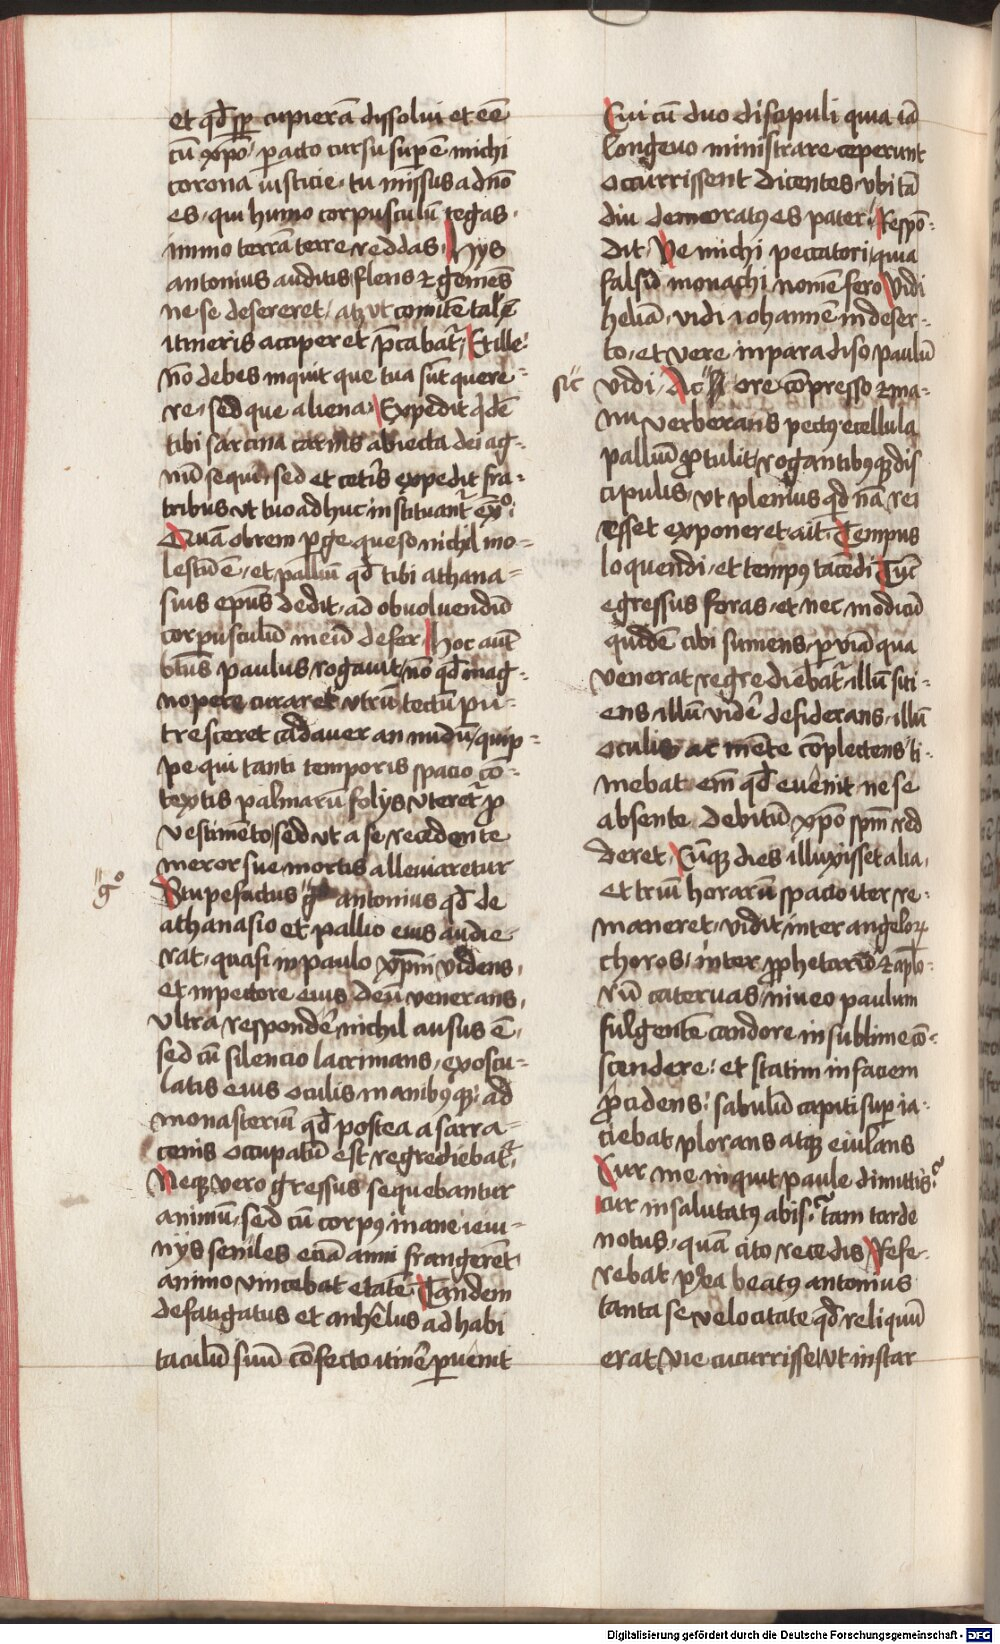 et qd̄ sp̄ cupierā dissolui et eē
cū xp̄o / peracto cursu supē michi
corona iusticie / tu missus a dn̄o
es / qui humo corpusculū tegas /
immo terrā terre reddas / Hys
antonius auditis flens ⁊ gemēs
ne se desereret / atqꝫ vt comitē talē
itineris acciperet p̄cabat᷑ / Et ille
nō debes inquit que tua sūt quere-
re / sed que aliena / Expedit q̇dē
tibi sarcina carnis abiecta dei ag-
nū sequi / sed et cet̄is expedit fra-
tribus vt tuo adhuc instituant᷑ ex̄o
Quā obrem perge queso nichil mo-
lestū ē / et palliū qd̄ tibi athana-
sius ep̄us dedit / ad obuoluendū
corpusculū meū defer / Hoc aūt
btūs paulus rogauit / nō qd̄ mag-
nopere curaret vtrū tectū pu-
tresceret cadauer an nudū / quip-
pe qui tanti temporis spacio cō-
textis palmarū folys vteret᷑ ꝓ
vestimēto / sed vt a se recedente
meror sue mortis alleuiaretur
"g° Stupefactus " antonius qd̄ de
athanasio et pallio eius audie-
rat / quasi in paulo xp̄m videns /
et in pectore eius deū venerans /
vltra respondēr nichil ausus ē /
sed cū silencio lacrimans / exoscu-
latis eius oculis manibꝰqꝫ / ad
monasteriū qd̄ postea a sarra-
cenis occupatū est regrediebat᷑ /
Neqꝫ vero gressus sequebantur
animū / sed cū corpꝰ inane ieiu-
nys seniles eciā anni frangerēt
animo vincebat etatē / Tandem
defatigatus et anhēlus ad habi
taculū suū cōfecto itinēr peruenit
Cui cū duo discipuli quia iā
longeuo ministrare ceperunt
occurrissent dicentes / vbi tā
diu demoratꝰ es pater / Respō-
dit / Ve michi peccatori / quia
falsū monachi nomē fero / Vidi
heliā / vidi iohannē in deser-
to / et vere in paradiso paulū
sic vidi / Ac "sic ore cōpresso ⁊ ma-
nu verberans pectꝰ e cellula
palliū ꝓtulit / rogantibꝰqꝫ dis
cipulis / vt plenius qd̄nā rei
esset exponeret ait / Tempus
loquendi / et tempꝰ tacēdi Tūc
egressus foras / et nec modicū
quidē cibi sumens / per viā qua
venerat regrediebat᷑ illū siti-
ens illū vidēr desiderans / illū
oculis ac mēte cōplectens / ti-
mebat em̄ qd̄ euēnit / ne se
absente debitū xp̄o sp̄m red
deret / Cūqꝫ dies illuxisset alia /
et triū horarū spacio iter re-
maneret / vidit inter angeloꝝ
choros / inter ꝓphetarū ⁊ ap̄lo-
rū cateruas / niueo paulum
fulgentē candore in sublime cō-
scendere / et statim in faciem
ꝓcidens / sabulū capiti sup ia-
ciebat plorans atqꝫ eiulans
Cur me inquit paule dimittis
cur insalutatꝰ abis / tam tarde
notus / quā cito recedis / Refe-
rebat p̄ea beatꝰ antonius
tanta se velocitate qd̄ reliquū
erat vie cucurrisse / vt instar
Digitalisierung gefördert durch die Deutsche Forschungsgemeinschaft - DFG